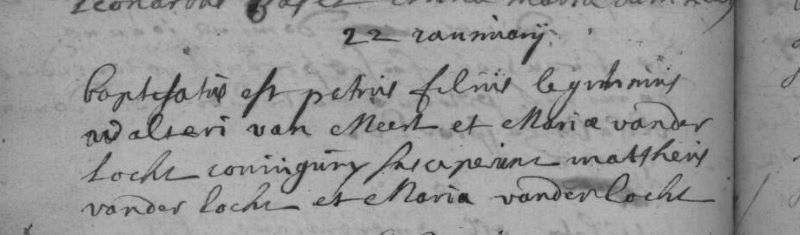 Leonardus
22 ianuarij
baptisatus est petrus filius legitimus
walteri van Meert et Maria vander
locht coniugum susceperunt mattheus
vander locht et Maria vander locht